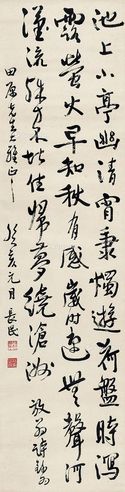 池上小亭幽清宵秉燭遊荷盤時瀉
露螢火早知秋有感歲時速無聲河
漢流殊方不堪住歸夢繞滄洲
放翁詩錄
田原先生雅正
癸亥元月 長民